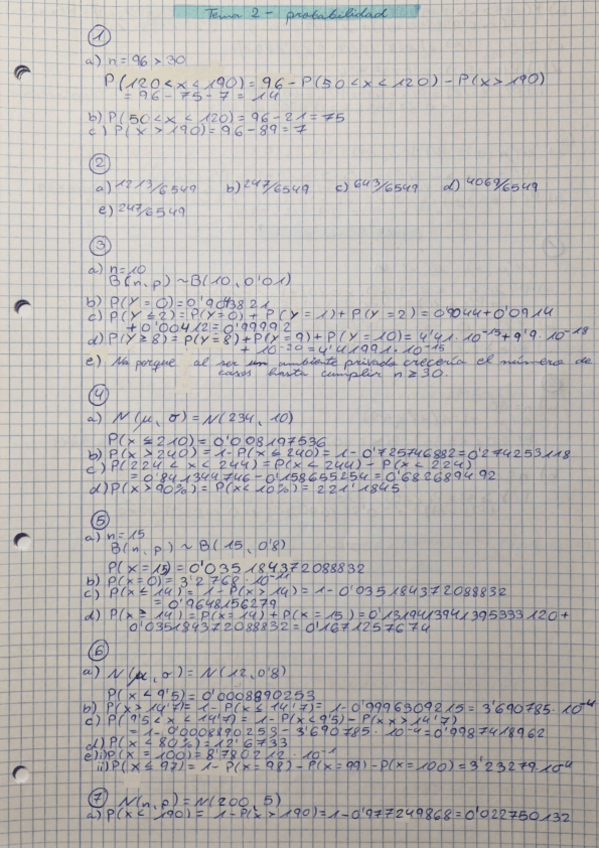 Tema 2 - probabilidad
1
a) n = 96 > 30
P(120 < x < 190) = 96 - P(50 < x < 120) - P(x > 190)
= 96 - 75 - 7 = 14
b) P(50 < x < 120) = 96 - 21 = 75
c) P(x > 190) = 96 - 89 = 7
2
a) 1213/6549 b) 247/6549 c) 643/6549 d) 4069/6549
e) 247/6549
3
a) n = 10
B(n, p) ~ B(10, 0'01)
b) P(Y = 0) = 0'9043821
c) P(Y ≤ 2) = P(Y = 0) + P(Y = 1) + P(Y = 2) = 0'9044 + 0'0914
+ 0'00412 = 0'99992
d) P(Y ≥ 8) = P(Y = 8) + P(Y = 9) + P(Y = 10) = 4'41 · 10^-15 + 9'9 · 10^-18
+ 10^-20 = 4'41991 · 10^-15
e) No porque al ser un ambiente privado crecería el número de
casos hasta cumplir n ≥ 30.
4
a) N(μ, σ) = N(234, 10)
P(x ≤ 210) = 0'008197536
b) P(x > 240) = 1 - P(x ≤ 240) = 1 - 0'725746882 = 0'274253118
c) P(224 < x < 244) = P(x < 244) - P(x < 224)
= 0'841344746 - 0'158655254 = 0'682689492
d) P(x > 90%) = P(x < 10%) = 221'1845
5
a) n = 15
B(n, p) ~ B(15, 0'8)
P(x = 15) = 0'0351843720 88832
b) P(x = 0) = 3'2768 · 10^-11
c) P(x ≤ 14) = 1 - P(x > 14) = 1 - 0'035184372088832
= 0'9648156279
d) P(x ≥ 14) = P(x = 14) + P(x = 15) = 0'131941395333120 +
0'035184372088832 = 0'1671257674
6
a) N(μ, σ) = N(12, 0'8)
P(x < 9'5) = 0'0008890253
b) P(x > 14'7) = 1 - P(x ≤ 14'7) = 1 - 0'9996309215 = 3'690785 · 10^-4
c) P(9'5 < x < 14'7) = 1 - P(x < 9'5) - P(x x > 14'7)
= 1 - 0'0008890253 - 3'690785 · 10^-4 = 0'9987418962
d) P(x < 80%) = 12'6733
e) i) P(x = 100) = 8'780212 · 10^-1
ii) P(x ≤ 97) = 1 - P(x = 98) - P(x = 99) - P(x = 100) = 3'23279 · 10^-4
7 N(n, p) = N(200, 5)
a) P(x < 190) = 1 - P(x > 190) = 1 - 0'977249868 = 0'022750132